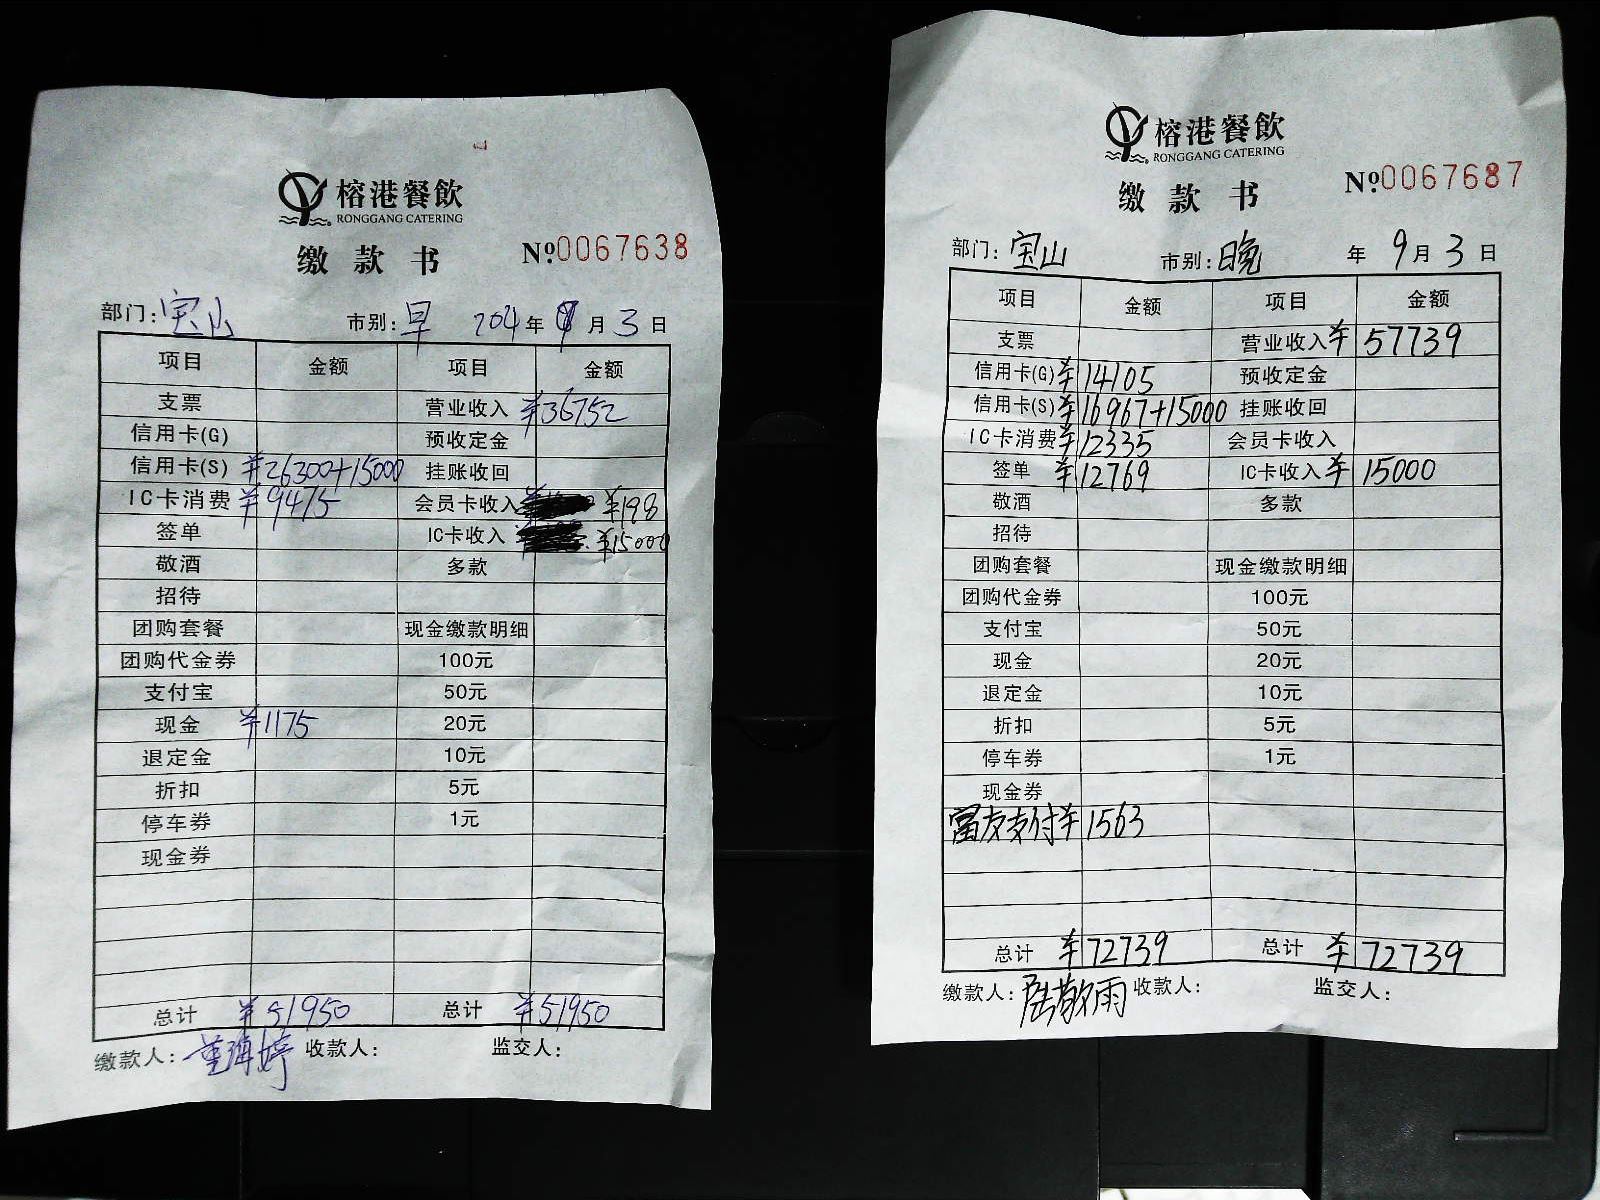 榕港餐飲
RONGGANG CATERING
缴款书
№:0067638
部门:宝山 市别:早 2024年9月3日
项目 金额 项目 金额
支票 营业收入 ¥36752
信用卡(G) 预收定金
信用卡(S) ¥26300+15000 挂账收回
IC卡消费 ¥9475 会员卡收入 ¥198
签单 IC卡收入 ¥15000
敬酒 多款
招待
团购套餐 现金缴款明细
团购代金券 100元
支付宝 50元
现金 ¥1175 20元
退定金 10元
折扣 5元
停车券 1元
现金券
总计 ¥51950 总计 ¥51950
缴款人: 收款人: 监交人:
榕港餐飲
RONGGANG CATERING
缴款书
№:0067687
部门:宝山 市别:晚 年9月3日
项目 金额 项目 金额
支票 营业收入 ¥57739
信用卡(G) ¥14105 预收定金
信用卡(S) ¥16967+15000 挂账收回
IC卡消费 ¥12335 会员卡收入
签单 ¥12769 IC卡收入 ¥15000
敬酒 多款
招待
团购套餐 现金缴款明细
团购代金券 100元
支付宝 50元
现金 20元
退定金 10元
折扣 5元
停车券 1元
现金券
富友支付 ¥1563
总计 ¥72739 总计 ¥72739
缴款人:陆敬雨 收款人: 监交人: